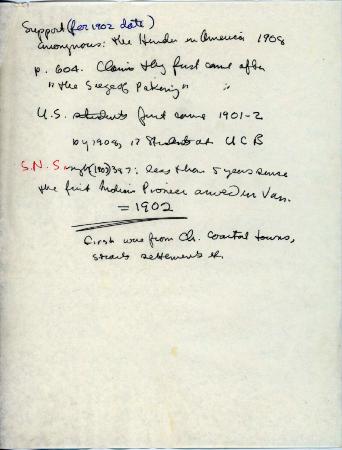 Support (for 1902 date)
Anonymous: the Hindu in America 1908
p. 604. Claims they first came after
"the Siege of Peking"
U.S. students first came 1901-2
by 1908, 17 students at UCB
S.N. Singh (1903) 387: less than 5 years since
the first Indian Pioneer arrived in Van.
= 1902
First was from Ch. coastal towns,
straits settlements